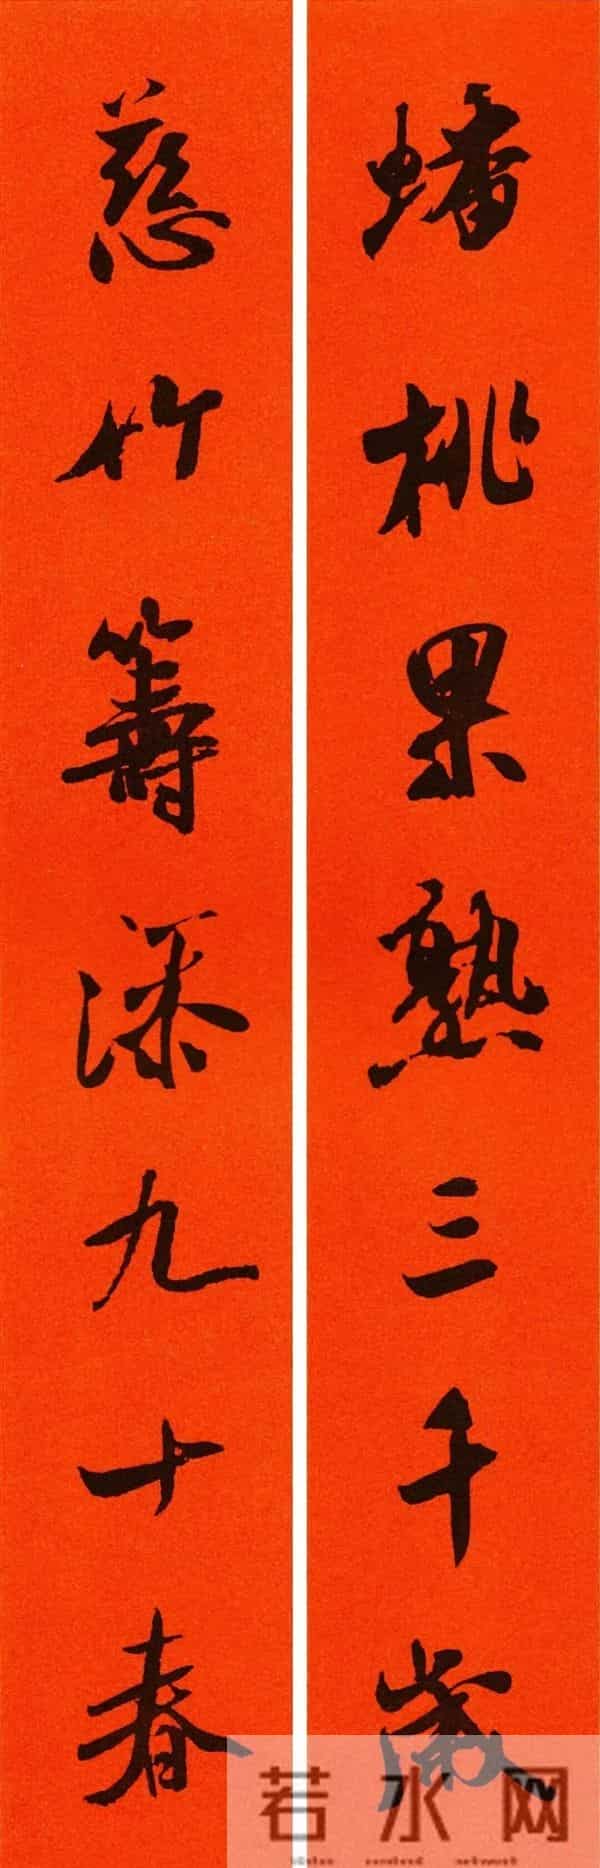 蟠桃果熟三千歲
慈竹籌添九十春
若水网